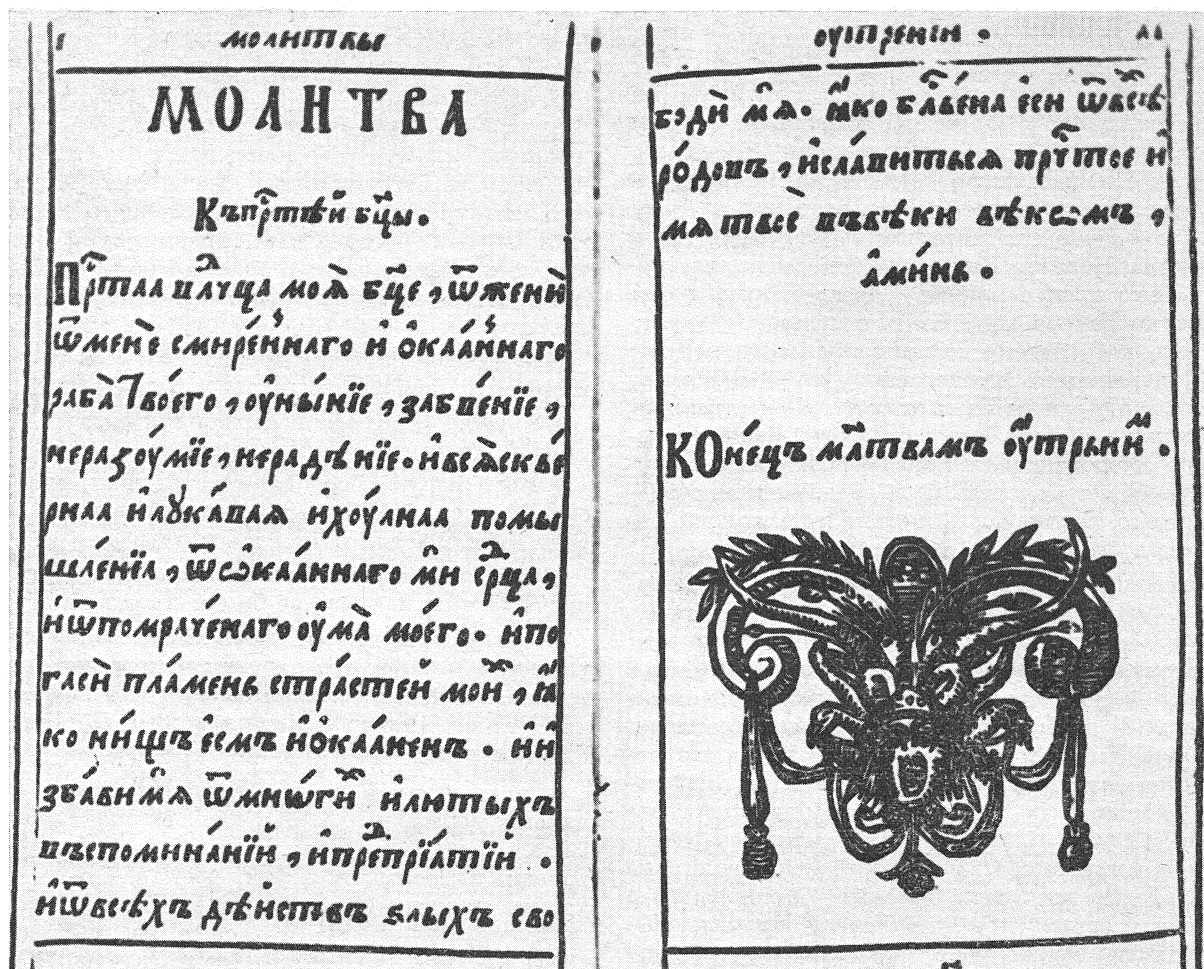 молитвы
МОЛИТВА
Къпрⷭ҇тѣ́й бц҃ы.
Прⷭ҇таѧ влⷣчца моѧ̀ бц҃е, ѿженѝ
ѿменѐ смире́ннаго и҆ ѻ҆каѧ́ннаго
раба̀ Твоего̀, ѹ҆ны́нїе, забве́нїе,
неразѹ́мїе, нерадѣ́нїе. и҆всѧ̀скве́
рнаѧ и҆лꙋка́ваѧ и҆хѹ́лнаѧ помы
шле́нїѧ, ѿѡкаѧ́ннаго ми се́рⷣца,
и҆ѿпомраче́наго ѹ҆ма̀ моего̀. и҆по
гасѝ пла́мень страсте́й мои́х, ꙗ҆́
ко ни́щъ є҆смъ и҆ѻ҆каѧ́ненъ. и҆и҆
зба́ви мѧ̀ ѿмно́гих и҆лю́тыхъ
въспомина́нїй, и҆прⷣепрїѧ́тїй.
и҆ѿвсѣ́хъ дѣ́йствъ ѕлы́хъ сво
ѹтрении.
бодѝ мѧ̀. ꙗ҆́ко блⷭ҇ве́на є҆сѝ ѿвсѣх
ро́довъ, и҆сла́витьсѧ прⷱ҇тое и҆
мѧ твоѐ въвѣ́ки вѣкѡ́мъ,
а҆ми́нь.
КОне́цъ мл҃твамъ ѹ҆́трьним.